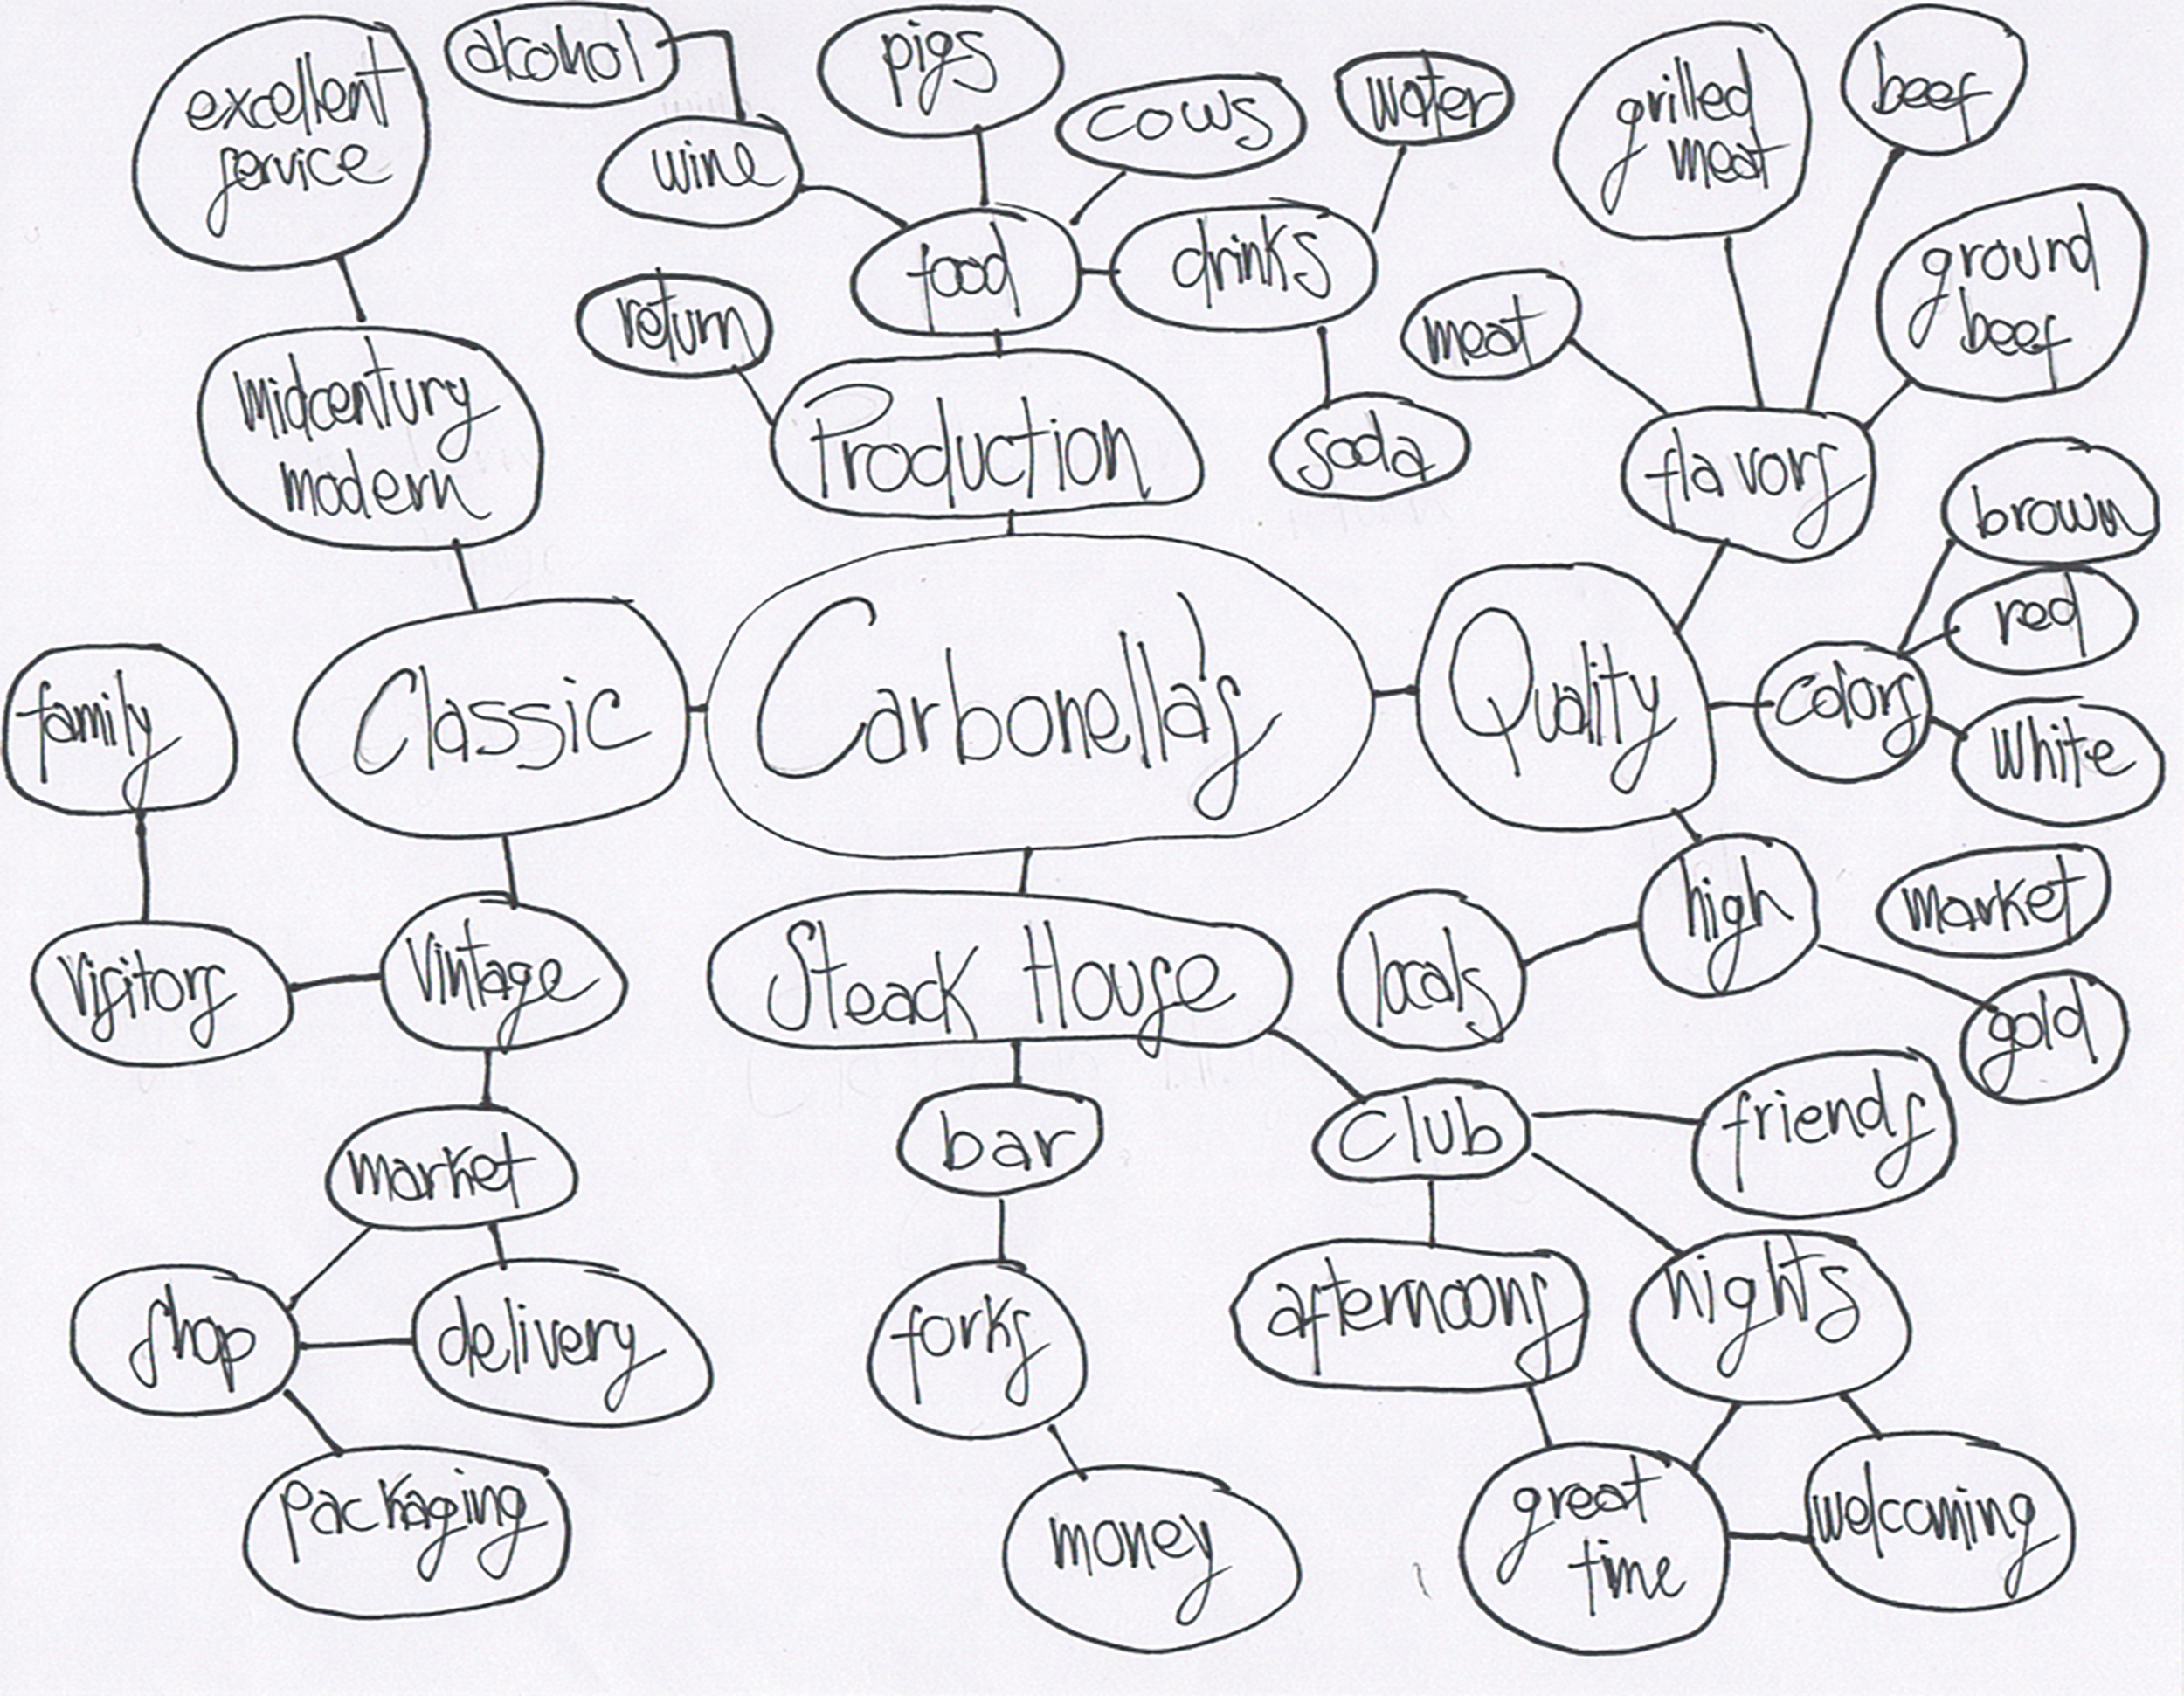 excellent
service
alcohol
wine
pigs
cows
water
grilled
meat
beef
food
drinks
ground
beef
return
meat
soda
midcentury
modern
Production
flavors
brown
red
colors
white
family
Classic
Carbonella's
Quality
high
market
locals
gold
visitors
vintage
Steack House
market
bar
club
friends
shop
delivery
forks
afternoons
nights
packaging
money
great
time
welcoming